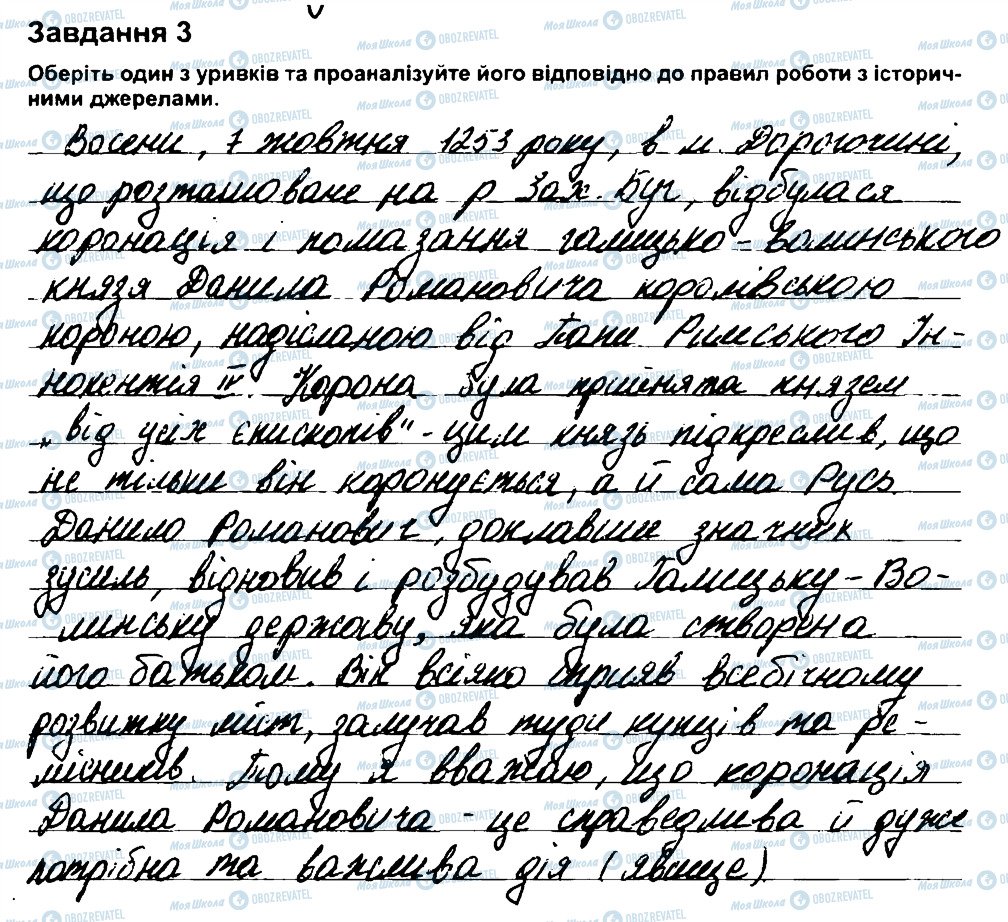 Завдання 3
Оберіть один з уривків та проаналізуйте його відповідно до правил роботи з історич-
ними джерелами.
Восени, 7 жовтня 1253 року, в м. Дорогочині,
що розташоване на р. Зах. Буг, відбулася
коронація і помазання галицько-волинського
князя Данила Романовича королівською
короною, надісланою від Папи Римського Ін-
нокентія IV. Корона була прийнята князем
„від усіх єпископів" - цим князь підкреслив, що
не тільки він коронується, а й сама Русь.
Данило Романович, доклавши значних
зусиль, відновив і розбудував Галицьку-Во-
линську державу, яка була створена
його батьком. Він всіляко сприяв всебічному
розвитку міст, залучав туди купців та ре-
місників. Тому я вважаю, що коронація
Данила Романовича - це справедлива й дуже
потрібна та важлива дія (явище)